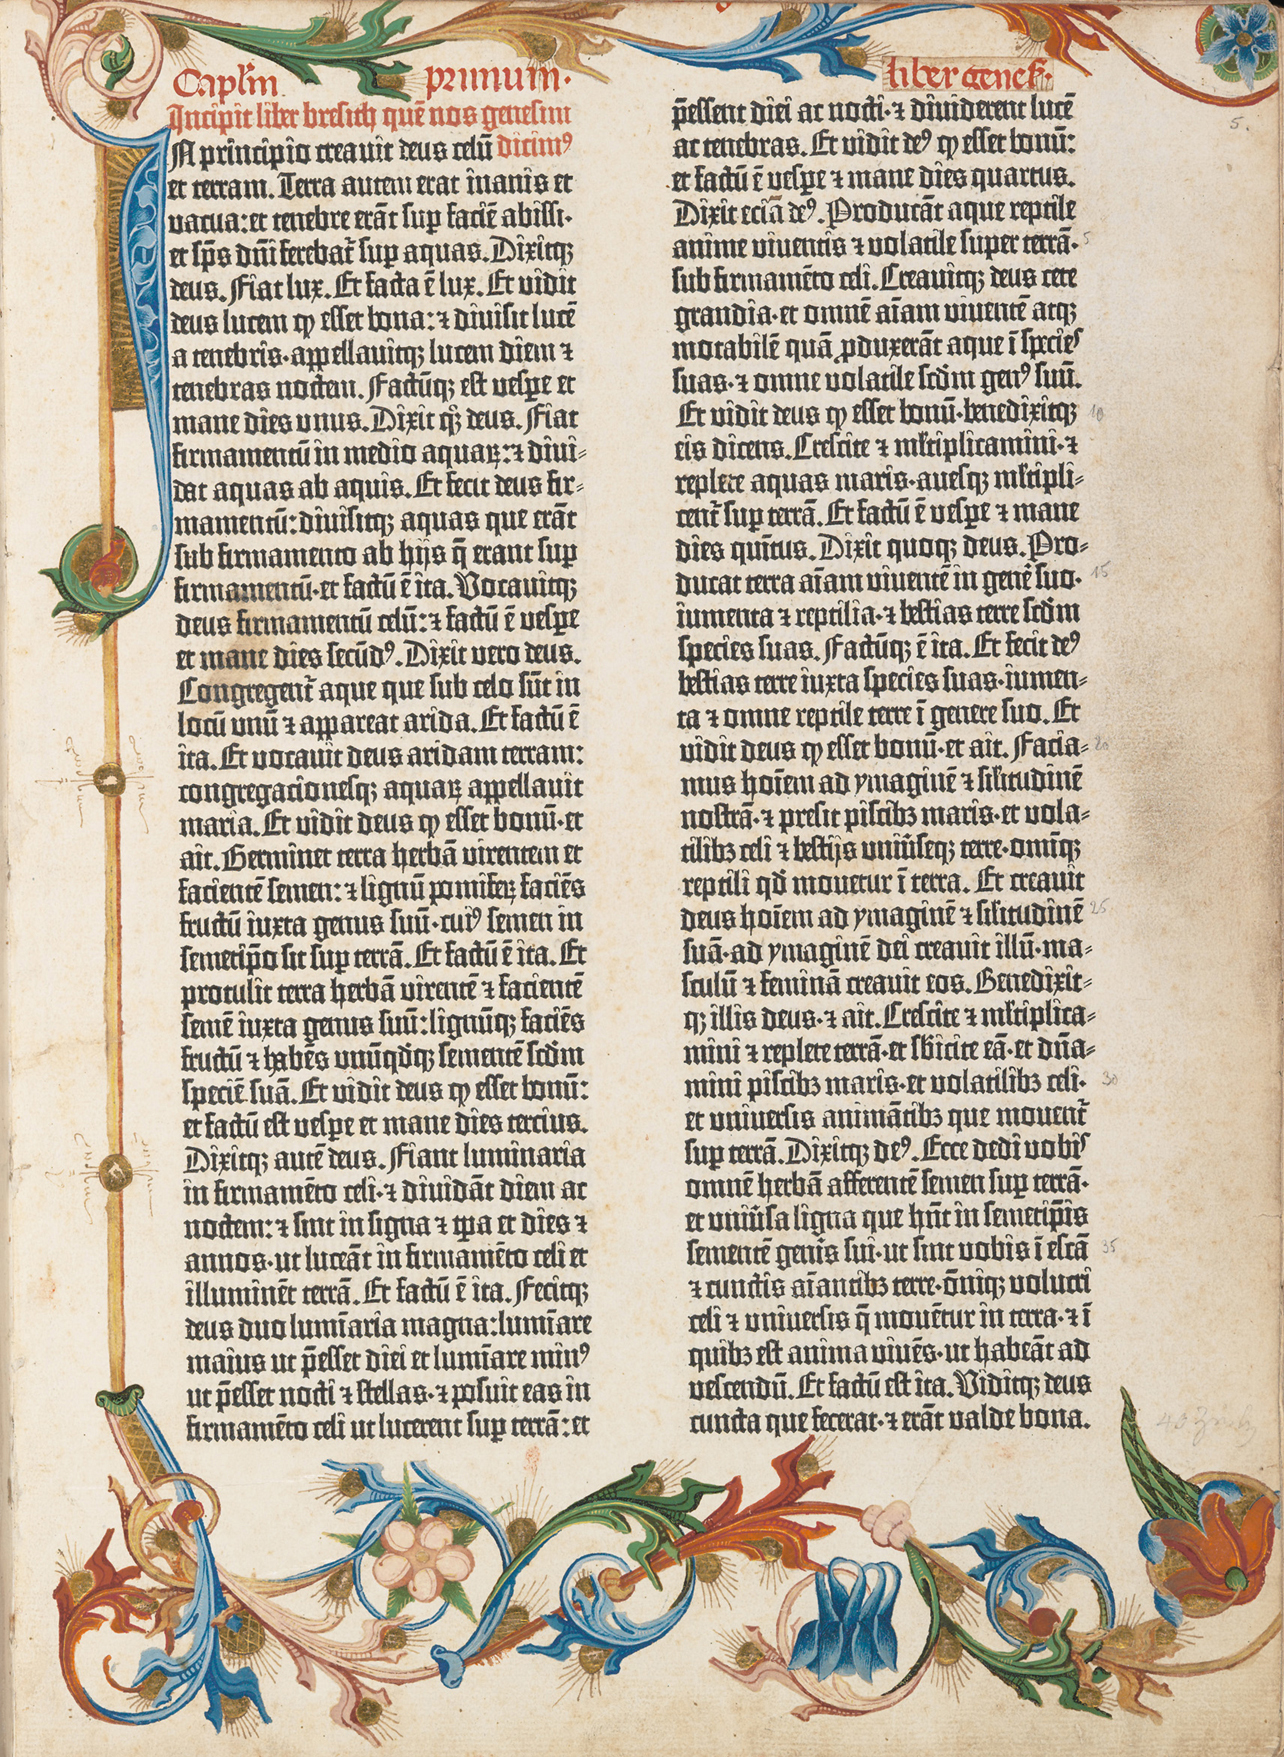 Caplm primum.
liber genes.
Incipit liber bresith quē nos genesim
IN principio creavit deus celū dicimꝰ
et terram. Terra autem erat inanis et
vacua: et tenebre erāt sup faciē abissi·
et sp̄s dn̄i ferebat̄ sup aquas. Dixitqꝫ
deus. Fiat lux. Et facta ē lux. Et vidit
deus lucem ꝙ esset bona: ⁊ divisit lucē
a tenebris· appellavitqꝫ lucem diem ⁊
tenebras noctem. Factūqꝫ est vespe et
mane dies unus. Dixit qꝫ deus. Fiat
firmamentū in medio aquaꝝ: ⁊ divi⸗
dat aquas ab aquis. Et fecit deus fir⸗
mamentū: divisitqꝫ aquas que erāt
sub firmamento ab hijs q̄ erant sup
firmamentū· et factū ē ita. Vocavitqꝫ
deus firmamentū celū: ⁊ factū ē vespe
et mane dies secūdꝰ. Dixit vero deus.
Congregent̄ aque que sub celo sūt in
locū unū ⁊ appareat arida. Et factū ē
ita. Et vocavit deus aridam terram:
congregacionesqꝫ aquaꝝ appellavit
maria. Et vidit deus ꝙ esset bonū· et
ait. Germinet terra herbā virentem et
facientē semen: ⁊ lignū pomiferꝝ faciēs
fructū iuxta genus suū· cuiꝰ semen in
semetip̄o sit sup terrā. Et factū ē ita. Et
protulit terra herbā virentē ⁊ facientē
semē iuxta genus suū: lignūqꝫ faciēs
fructū ⁊ habēs unūqdqꝫ sementē scdm
speciē suā. Et vidit deus ꝙ esset bonū:
et factū est vespe et mane dies tercius.
Dixitqꝫ autē deus. Fiant luminaria
in firmamēto celi· ⁊ dividāt diem ac
noctem: ⁊ sint in signa ⁊ tp̄a et dies ⁊
annos· ut luceāt in firmamēto celi et
illuminēt terrā. Et factū ē ita. Fecitqꝫ
deus duo lumīaria magna: lumīare
maius ut p̄esset diei et lumīare minꝰ
ut p̄esset nocti ⁊ stellas· ⁊ posuit eas in
firmamēto celi ut lucerent sup terrā: et
p̄essent diei ac nocti· ⁊ dividerent lucē
ac tenebras. Et vidit deꝰ ꝙ esset bonū:
et factū ē vespe ⁊ mane dies quartus.
Dixit eciā deꝰ. Producāt aque reptile
anime viventis ⁊ volatile super terrā·
sub firmamēto celi. Creavitqꝫ deus cete
grandia· et omnē aīam viventē atqꝫ
motabilē quā ꝓduxerāt aque ī species
suas· ⁊ omne volatile scdm genꝰ suū.
Et vidit deus ꝙ esset bonū· benedixitqꝫ
eis dicens. Crescite ⁊ mltiplicamini· ⁊
replete aquas maris· avesqꝫ mltipli⸗
cent̄ sup terrā. Et factū ē vespe ⁊ mane
dies quītus. Dixit quoqꝫ deus. Pro⸗
ducat terra aīam viventē in gene suo·
iumenta ⁊ reptilia· ⁊ bestias terre scdm
species suas. Factūqꝫ ē ita. Et fecit deꝰ
bestias terre iuxta species suas· iumen⸗
ta ⁊ omne reptile terre ī genere suo. Et
vidit deus ꝙ esset bonū· et ait. Facia⸗
mus hoīem ad ymaginē ⁊ silitudinē
nostrā· ⁊ presit piscibꝫ maris· et vola⸗
tilibꝫ celi ⁊ bestijs univseqꝫ terre· omīqꝫ
reptili qd movetur ī terra. Et creavit
deus hoīem ad ymaginē ⁊ silitudinē
suā· ad ymaginē dei creavit illū· ma⸗
sculū ⁊ feminā creavit eos. Benedixit⸗
qꝫ illis deus· ⁊ ait. Crescite ⁊ mltiplica⸗
mini ⁊ replete terrā· et sbicite eā· et dn̄a⸗
mini piscibꝫ maris· et volatilibꝫ celi·
et universis animātibꝫ que movent̄
sup terrā. Dixitqꝫ deꝰ. Ecce dedi vobis
omnē herbā afferentē semen sup terrā·
et univsa ligna que hn̄t in semetip̄is
sementē genis sui· ut sint vobis ī escā
⁊ cunctis aīantibꝫ terre· ōniqꝫ volucri
celi ⁊ universis q̄ movētur in terra· ⁊ ī
quibꝫ est anima vivēs· ut habeāt ad
vescendū. Et factū est ita. Viditqꝫ deus
cuncta que fecerat· ⁊ erāt valde bona.
5.
5
10
15
20
25
30
35